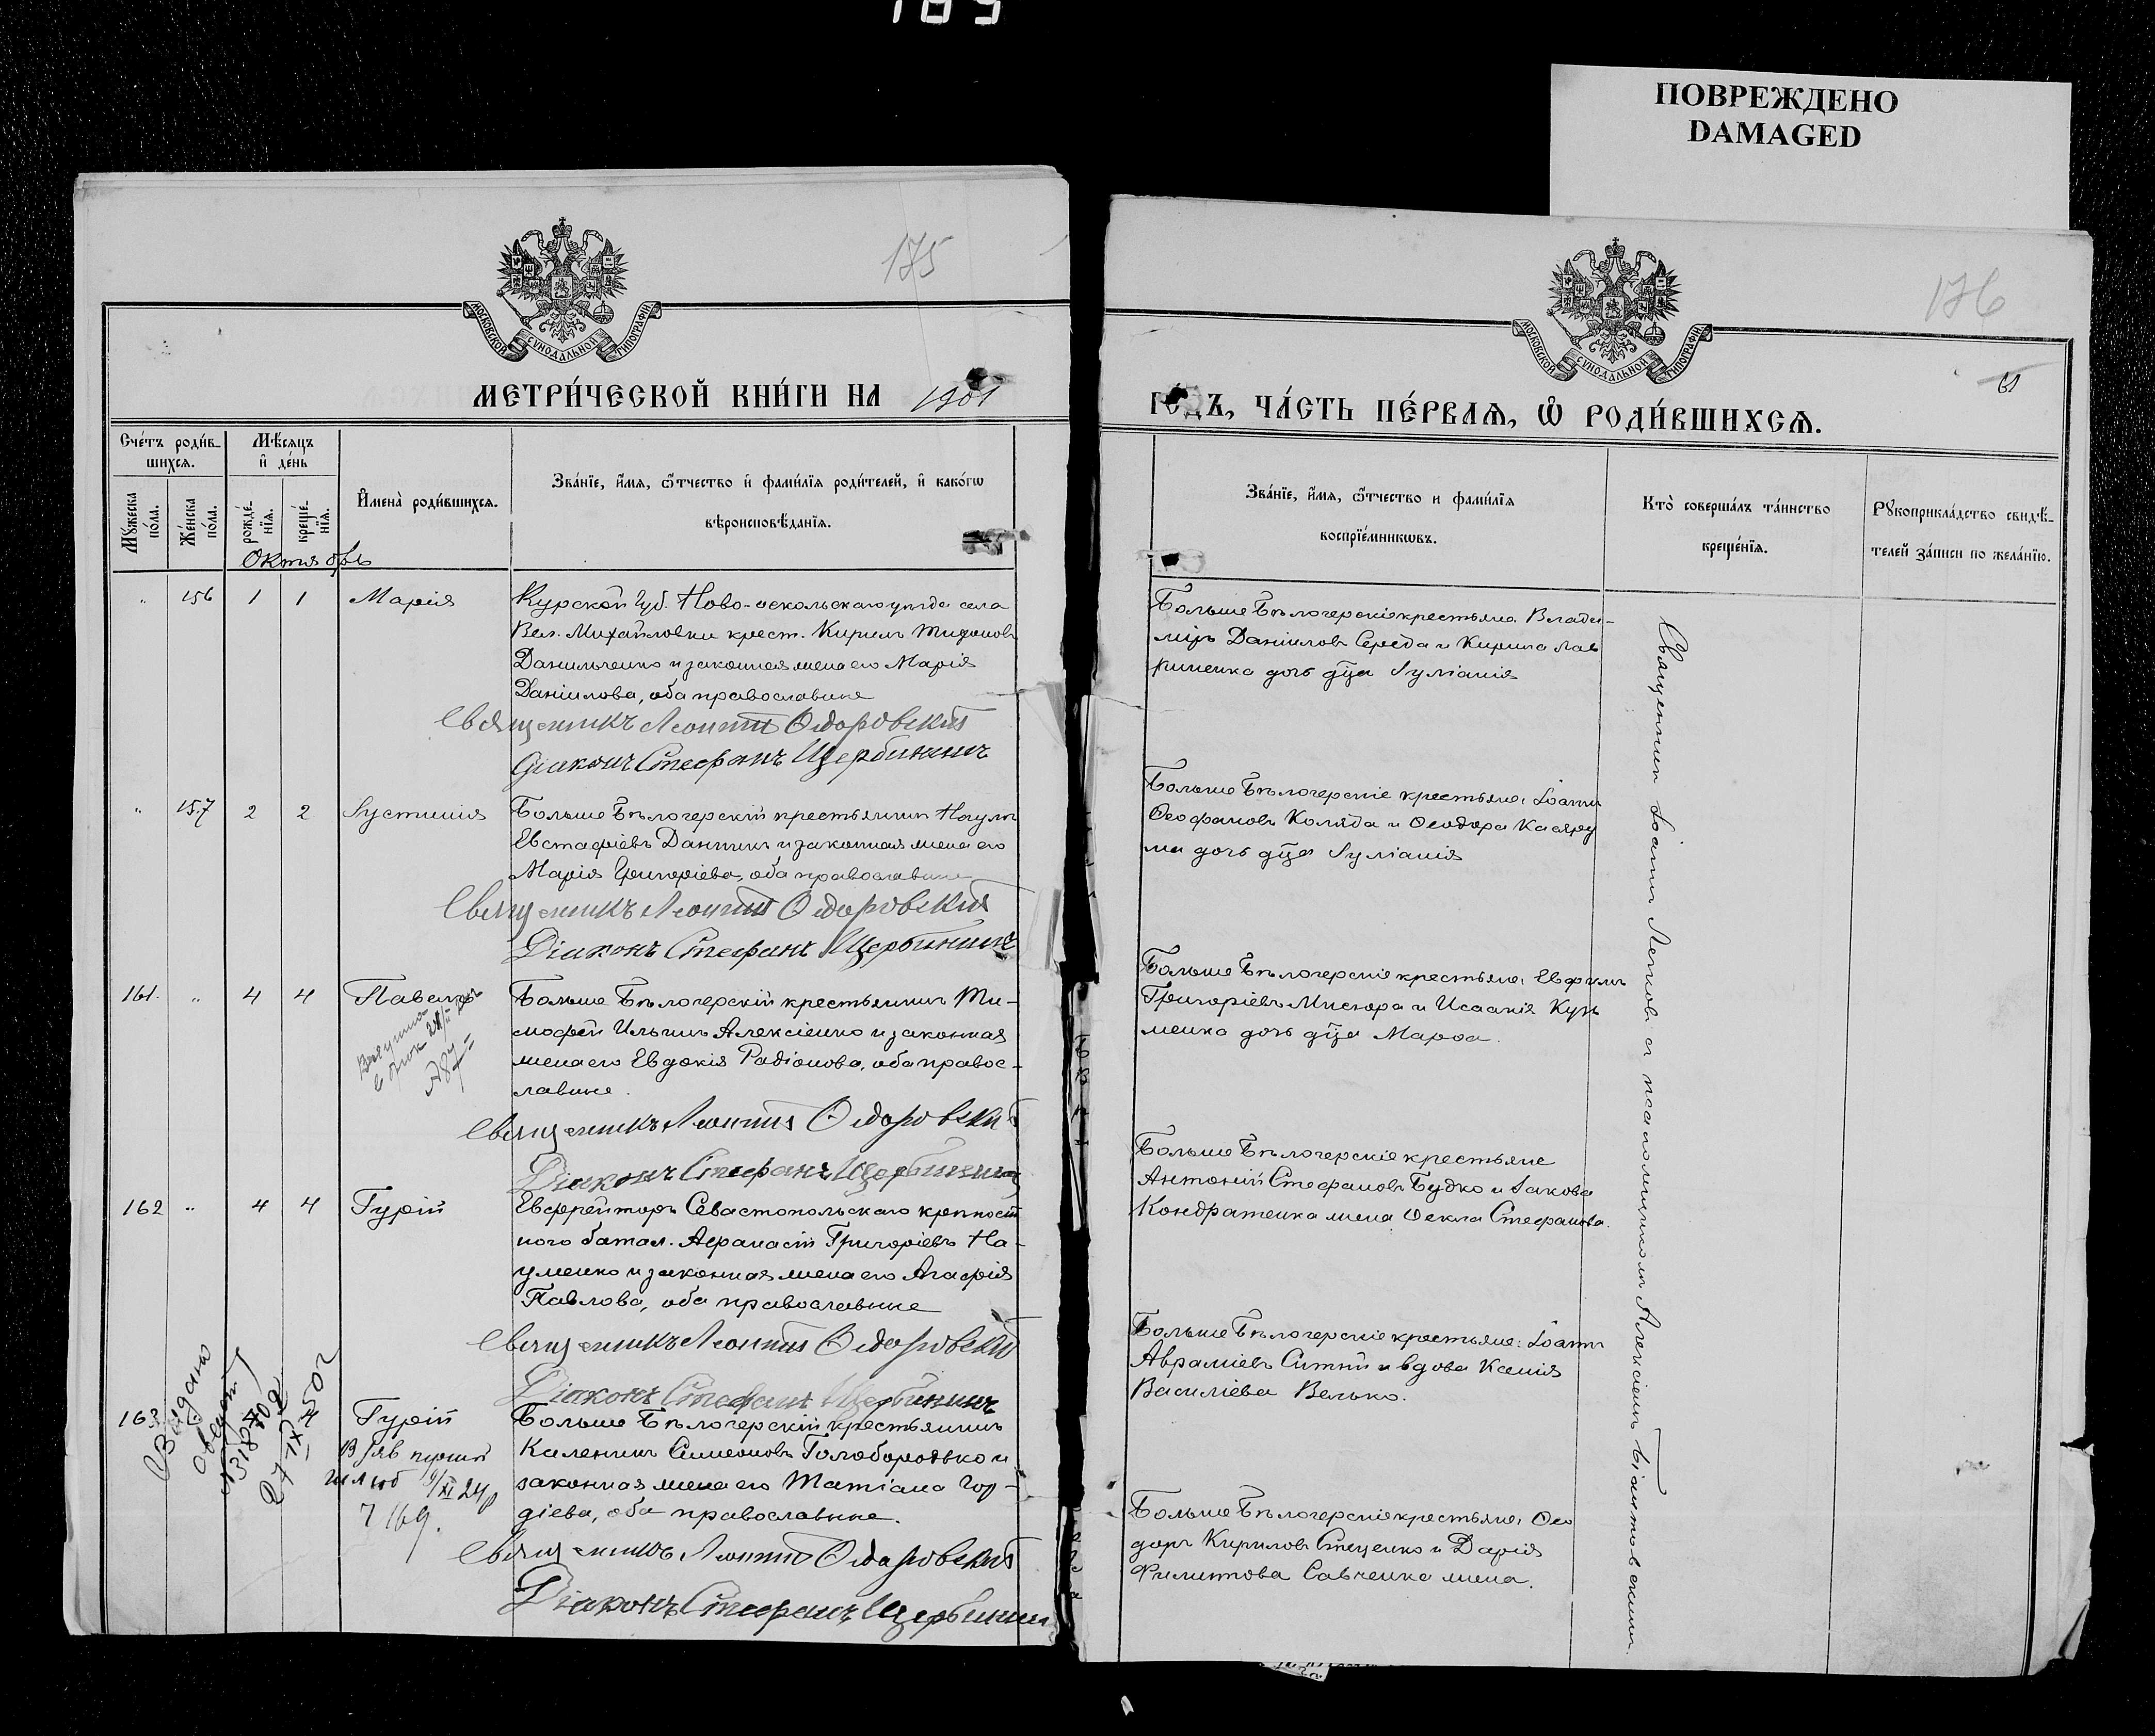 ПОВРЕЖДЕНО
DAMAGED
175
МОСКОВСКОЙ СѴНОДАЛЬНОЙ ТИПОГРАФІИ
МЕТРИ́ЧЕСКОЙ КНИ́ГИ НА 1901
Сче́тъ роди́в-
шихсѧ.
Мѣсѧцъ
и҆ де́нь
Мꙋ́жеска по́ла.
Же́нска по́ла.
рожде́-нїѧ.
креще́-нїѧ.
И҆мена̀ роди́вшихсѧ.
Зва́нїе, и҆́мѧ, ѻ҆́тчество и҆ фами́лїѧ роди́телей, и҆ како́гѡ
вѣроисповѣ́данїѧ.
Октябрь
" 156 1 1 Марія
Курской губ. Ново-оскольскаго уѣзда села
Вел. Михайловки крест. Кирилъ Тихоновъ
Данильченко и законная жена его Марія
Даніилова, оба православные
Священникъ Леонтій Ѳедоровскій
Діаконъ Стефанъ Щербининъ
" 157 2 2 Іустинія
Больше Бѣлозерскій крестьянинъ Наумъ
Евстафіевъ Данникъ и законная жена его
Марія Григоріева, оба православные
Священникъ Леонтій Ѳедоровскій
Діаконъ Стефанъ Щербининъ
161. " 4 4 Павелъ
Больше Бѣлозерскій крестьянинъ Ти-
мофей Ильинъ Алексіенко и законная
жена его Евдокія Радіонова, оба правос-
лавные.
Священникъ Леонтій Ѳедоровскій
Діаконъ Стефанъ Щербининъ
162 " 4 4 Гурій
Ефрейторъ Севастопольскаго крѣпост
ного батал. Афанасій Григоріевъ На-
уменко и законная жена его Агафія
Павлова, оба православные
Священникъ Леонтій Ѳедоровскій
Діаконъ Стефанъ Щербининъ
163. Гурій
Больше Бѣлозерскій крестьянинъ
Каленикъ Симеоновъ Голобородько и
законная жена его Татіана Гор-
діева, оба православные.
Священникъ Леонтій Ѳедоровскій
Діаконъ Стефанъ Щербининъ
Видано
7 169.
176
61
МОСКОВСКОЙ СѴНОДАЛЬНОЙ ТИПОГРАФІИ
ГО́ДЪ, ЧА́СТЬ ПЕ́РВАѦ, Ѡ҆ РОДИ́ВШИХСѦ.
Зва́нїе, и҆́мѧ, ѻ҆́тчество и фами́лїѧ
воспрїе́мникѡвъ.
Кто̀ соверша́лъ та́инство
креще́нїѧ.
Рꙋкоприкла́дство свидѣ́-
телей за́писи по жела́нїю.
Больше Бѣлозерскіе крестьяне: Влади-
міръ Даніиловъ Середа и Кирила Лав
риненка дочь дѣвица Іуліанія
Больше Бѣлозерскіе крестьяне: Іоаннъ
Ѳеофановъ Коляда и Ѳеодора Касяру
ма дочь дѣвица Іуліанія
Больше Бѣлозерскіе крестьяне: Евфимъ
Григоріевъ Мисюра и Исаакія Кузь
менка дочь дѣвица Марѳа.
Больше Бѣлозерскіе крестьяне
Антоній Стефановъ Будко и Іакова
Кондратенка жена Ѳекла Стефанова.
Больше Бѣлозерскіе крестьяне: Іоаннъ
Авраміевъ Ситий и вдова Ксенія
Василіева Велько.
Больше Бѣлозерскіе крестьяне: Ѳео
доръ Кириловъ Стеценко и Дарія
Филиппова Савченка жена.
Священникъ Іоаннъ Лепковъ съ псаломщикомъ Алексіемъ